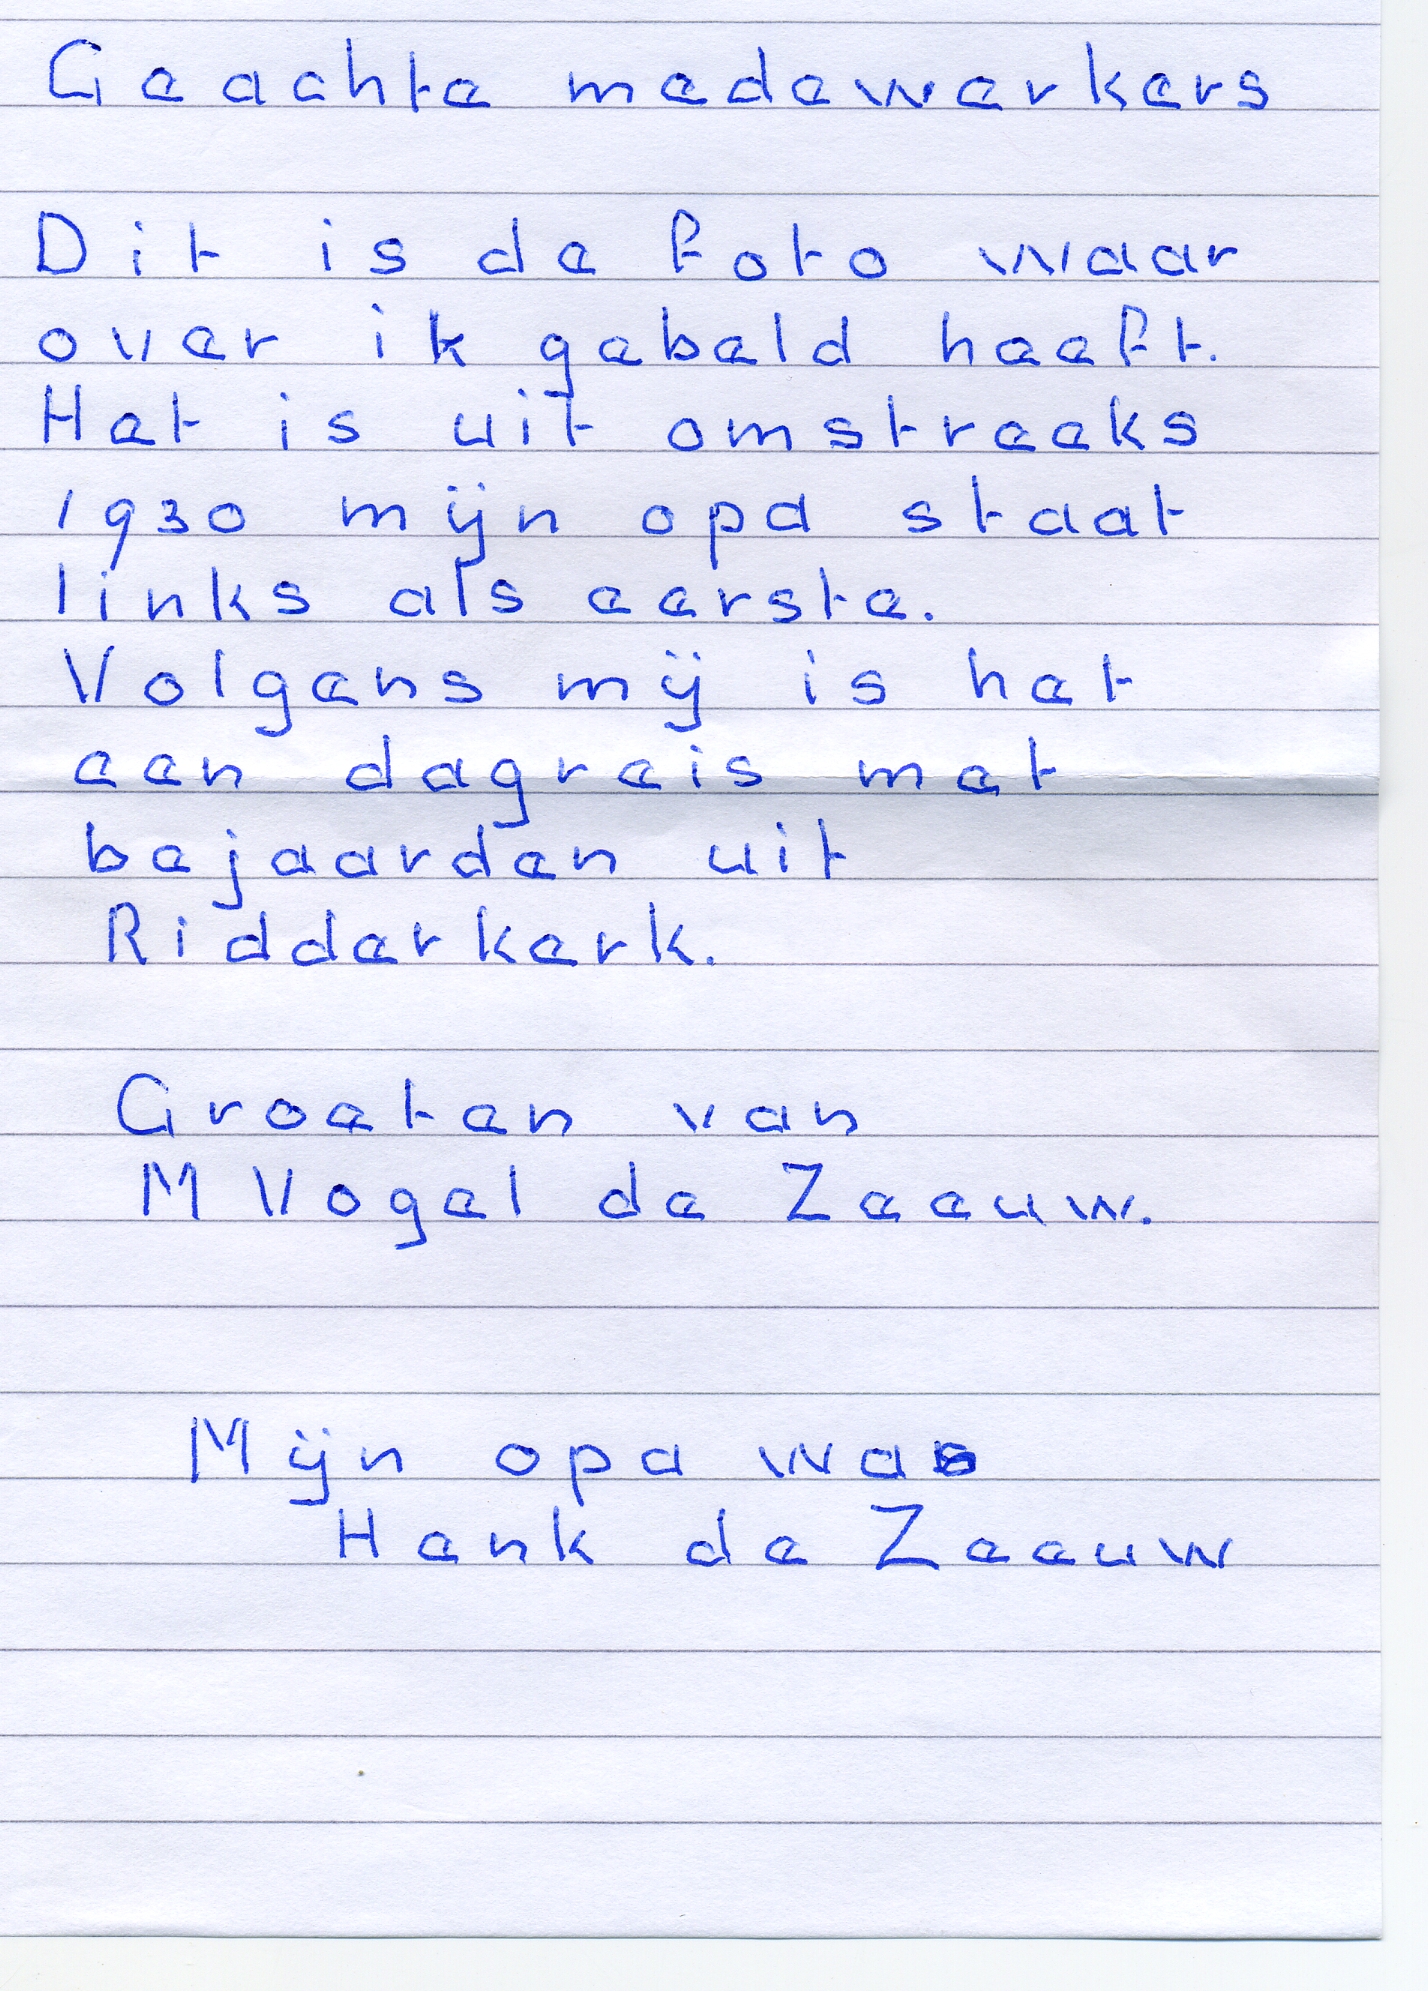 Geachte medewerkers
Dit is de foto waar
over ik gebeld heeft.
Het is uit omstreeks
1930 mijn opa staat
links als eerste.
Volgens mij is het
een dagreis met
bejaarden uit
Ridderkerk.
Groeten van
M Vogel de Zeeuw.
Mijn opa was
Henk de Zeeuw